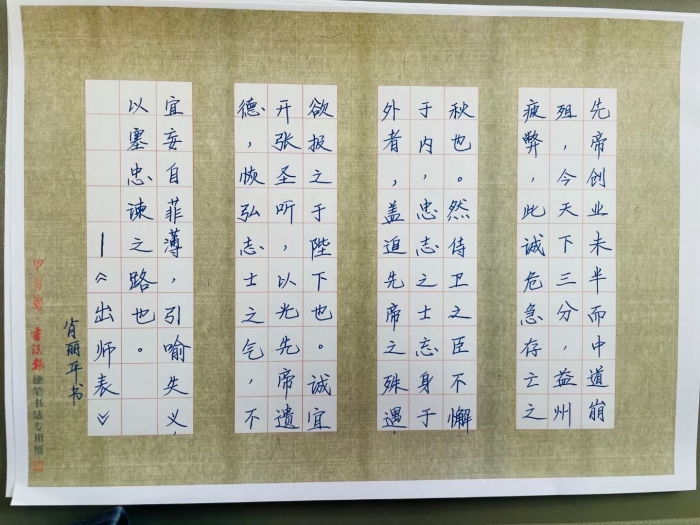 先帝创业未半而中道崩
殂,今天下三分,益州
疲弊,此诚危急存亡之
秋也。然侍卫之臣不懈
于内,忠志之士忘身于
外者,盖追先帝之殊遇,
欲报之于陛下也。诚宜
开张圣听,以光先帝遗
德,恢弘志士之气,不
宜妄自菲薄,引喻失义,
以塞忠谏之路也。
—《出师表》
肖丽平书
書法報 硬笔书法专用纸